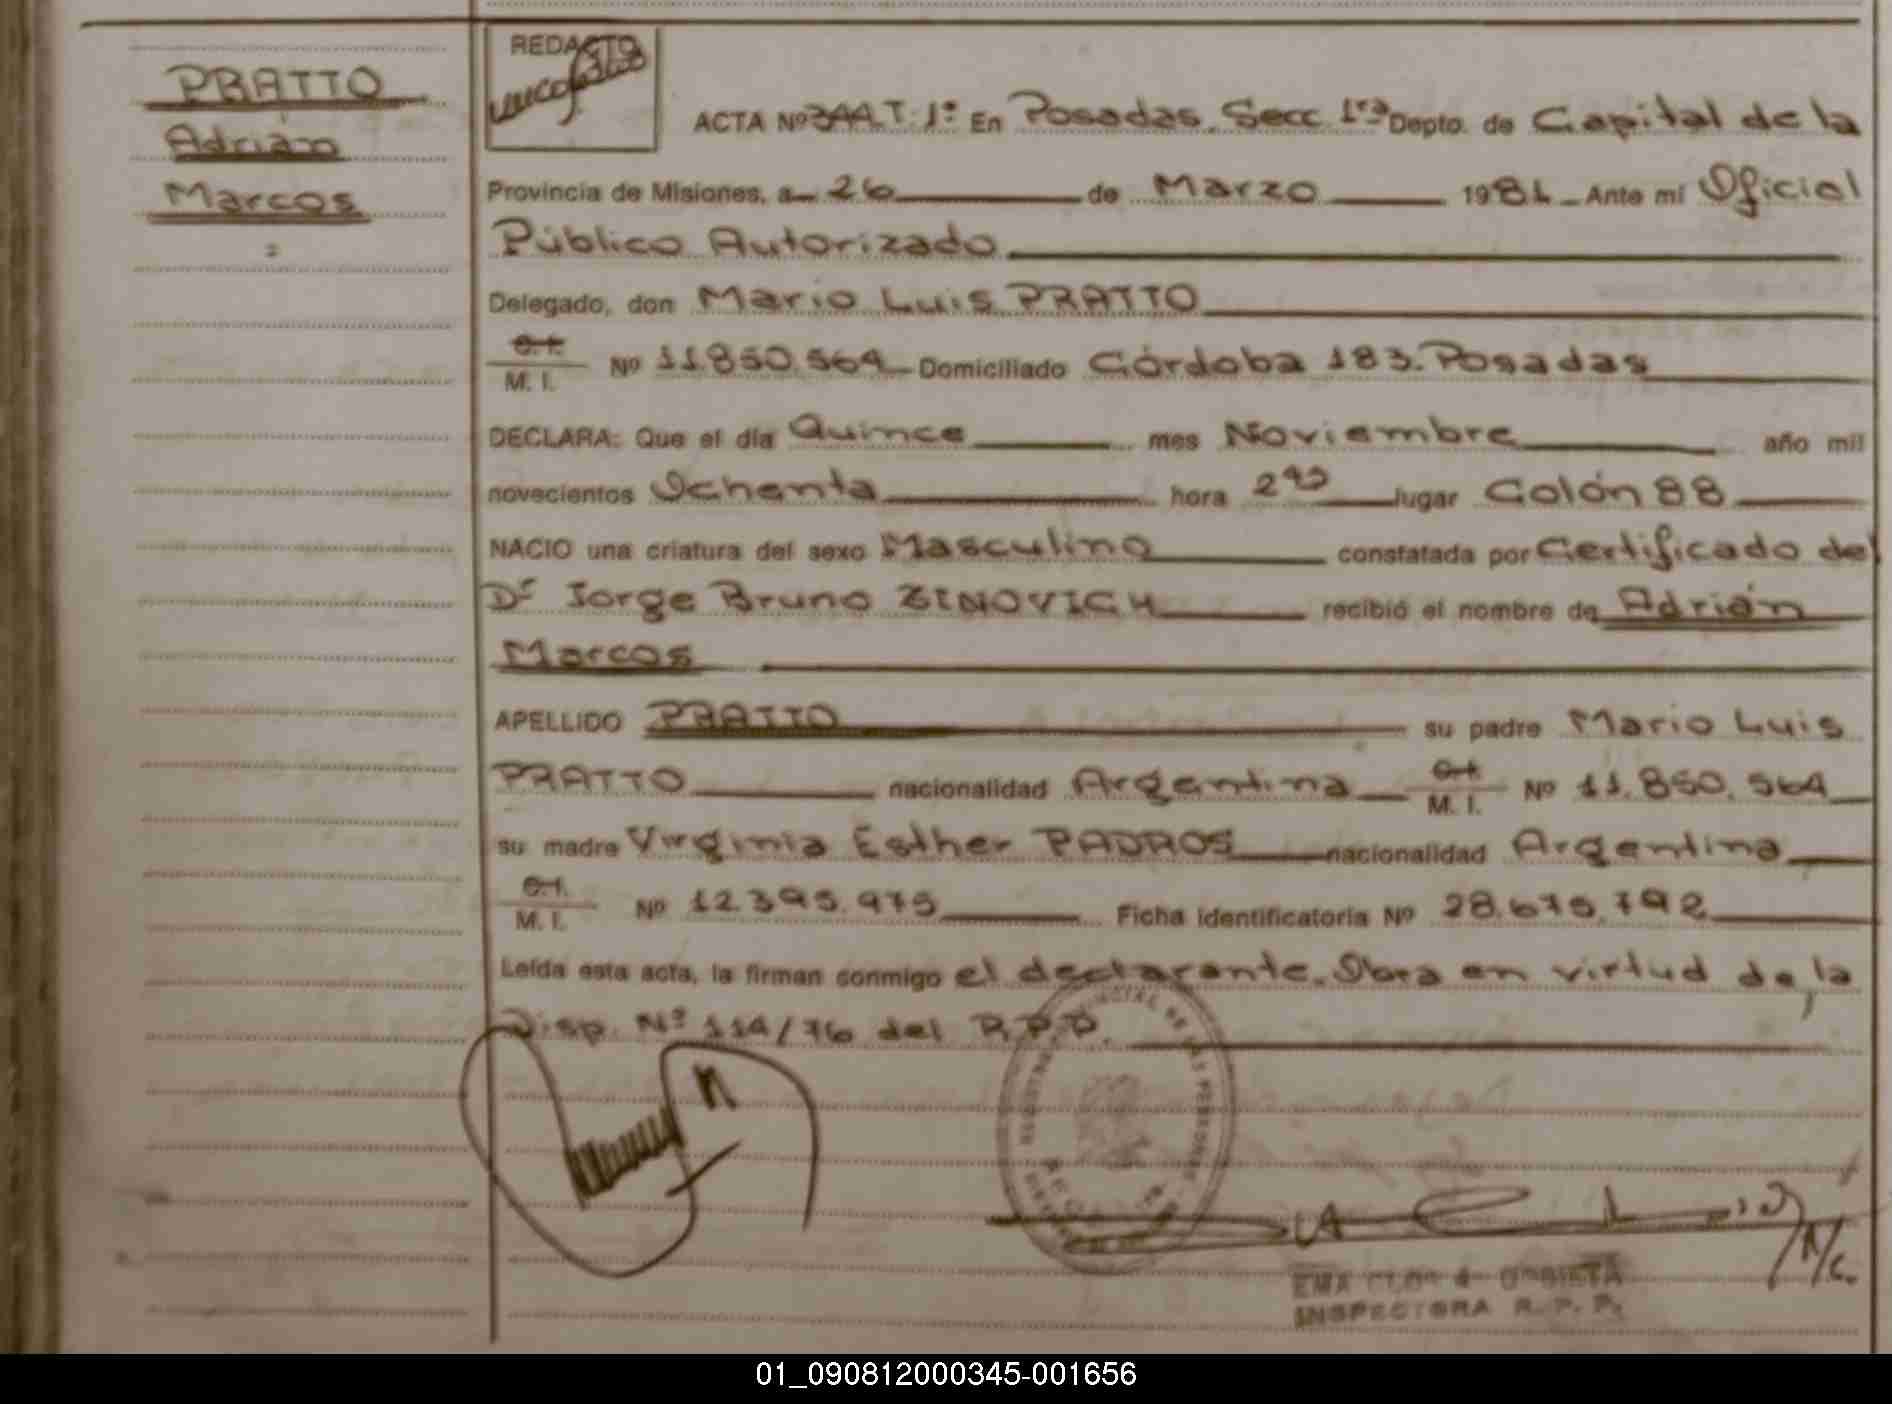 PRATTO
Adrián
Marcos
REDACTO
ACTA Nº 344 T: 1º En Posadas, Secc 1ra Depto. de Capital de la
Provincia de Misiones, a 26 de Marzo 1981 Ante mí Oficial
Público Autorizado
Delegado, don Mario Luis PRATTO
C. I.
M. I. Nº 11.850.564 Domiciliado Córdoba 183. Posadas
DECLARA: Que el día Quince mes Noviembre año mil
novecientos Ochenta hora lugar Colón 88
NACIO una criatura del sexo Masculino constatada por Certificado del
Dr Jorge Bruno ZINOVICH recibió el nombre de Adrián
Marcos
APELLIDO PRATTO su padre Mario Luis
PRATTO nacionalidad Argentina C. I. M. I. Nº 11.850.564
su madre Virginia Esther PADROS nacionalidad Argentina
C. I.
M. I. Nº 12.395.975 Ficha identificatoria Nº 28.675.792
Leída esta acta, la firman conmigo el declarante. Obra en virtud de la
Disp. Nº 114/76 del R.P.P.
REGISTRO PROVINCIAL DE LAS PERSONAS
EMA
INSPECTORA R. P. P.
01_090812000345-001656